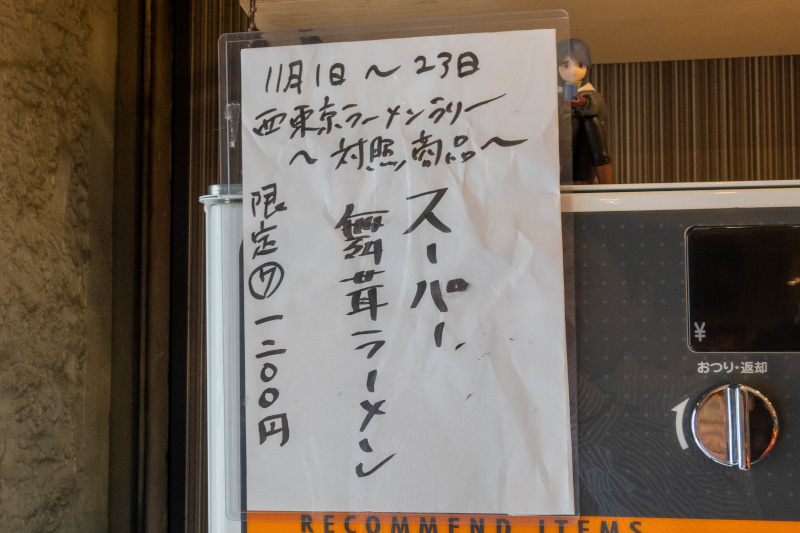 11月1日～23日
西東京ラーメンラリー
～対照商品～
スーパー
舞茸ラーメン
限定⑦一二〇〇円
¥
おつり・返却
RECOMMEND ITEMS